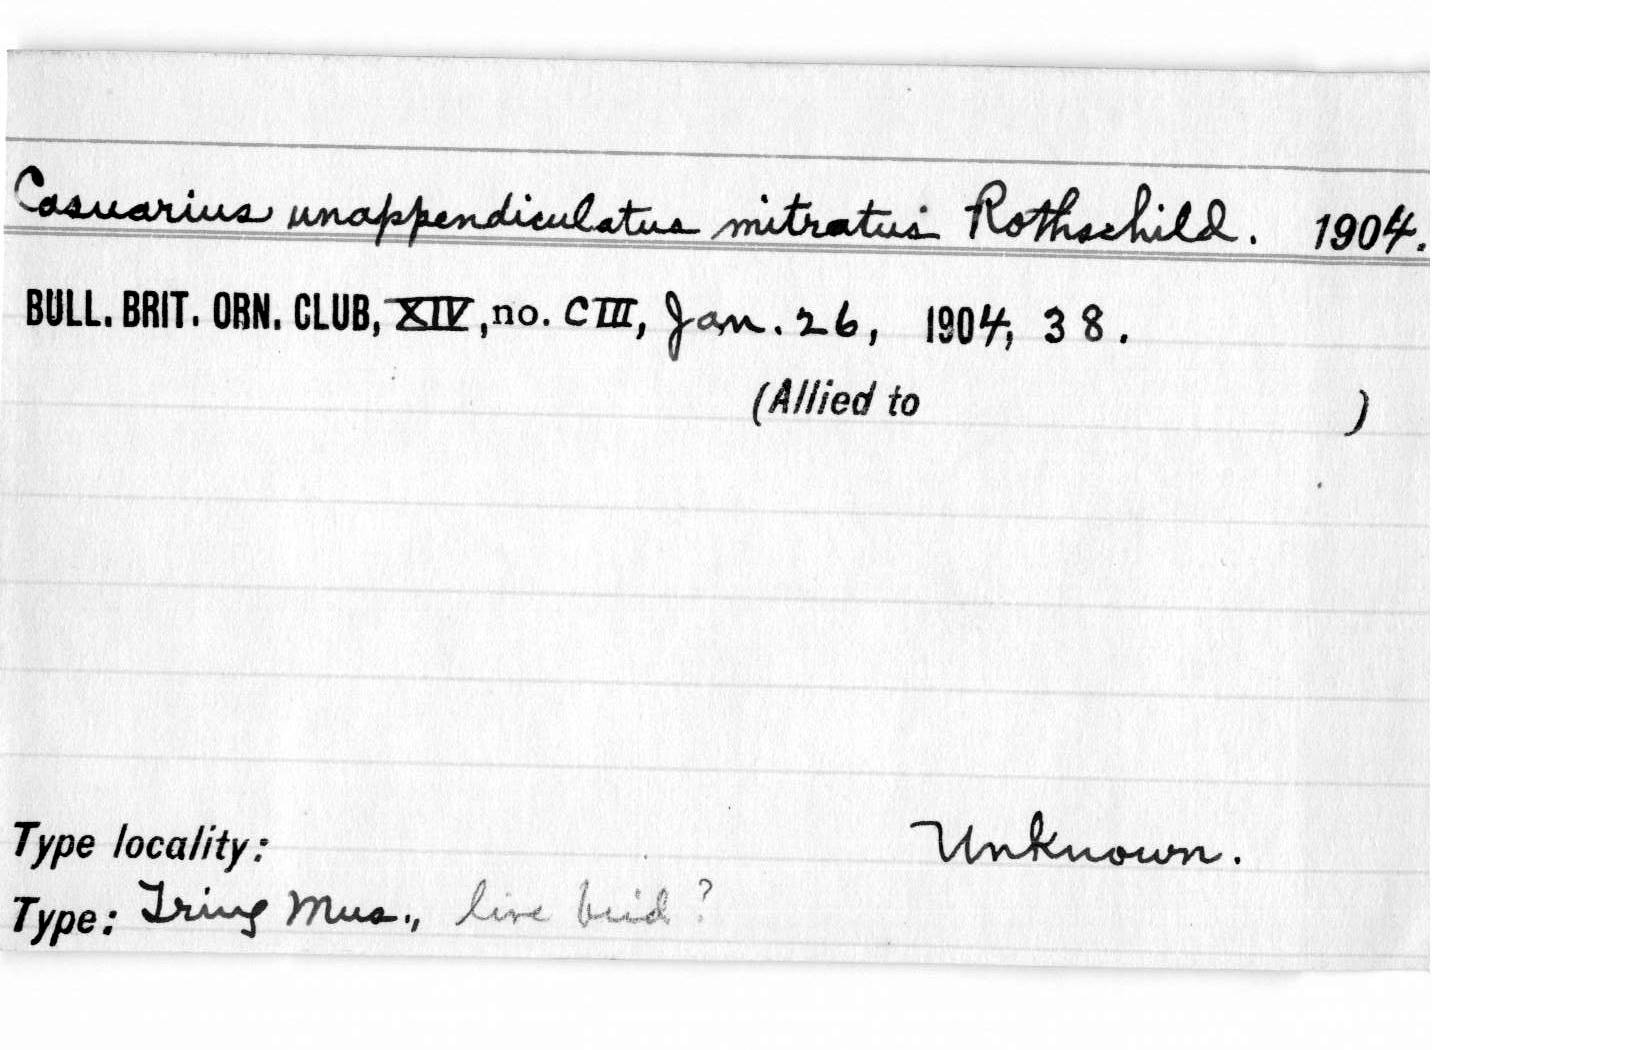 Casuarius unappendiculatus mitratus Rothschild. 1904.
BULL. BRIT. ORN. CLUB, XIV, no. CIII, Jan. 26, 1904, 38.
(Allied to )
Type locality: Unknown.
Type: Tring Mus., live bird?